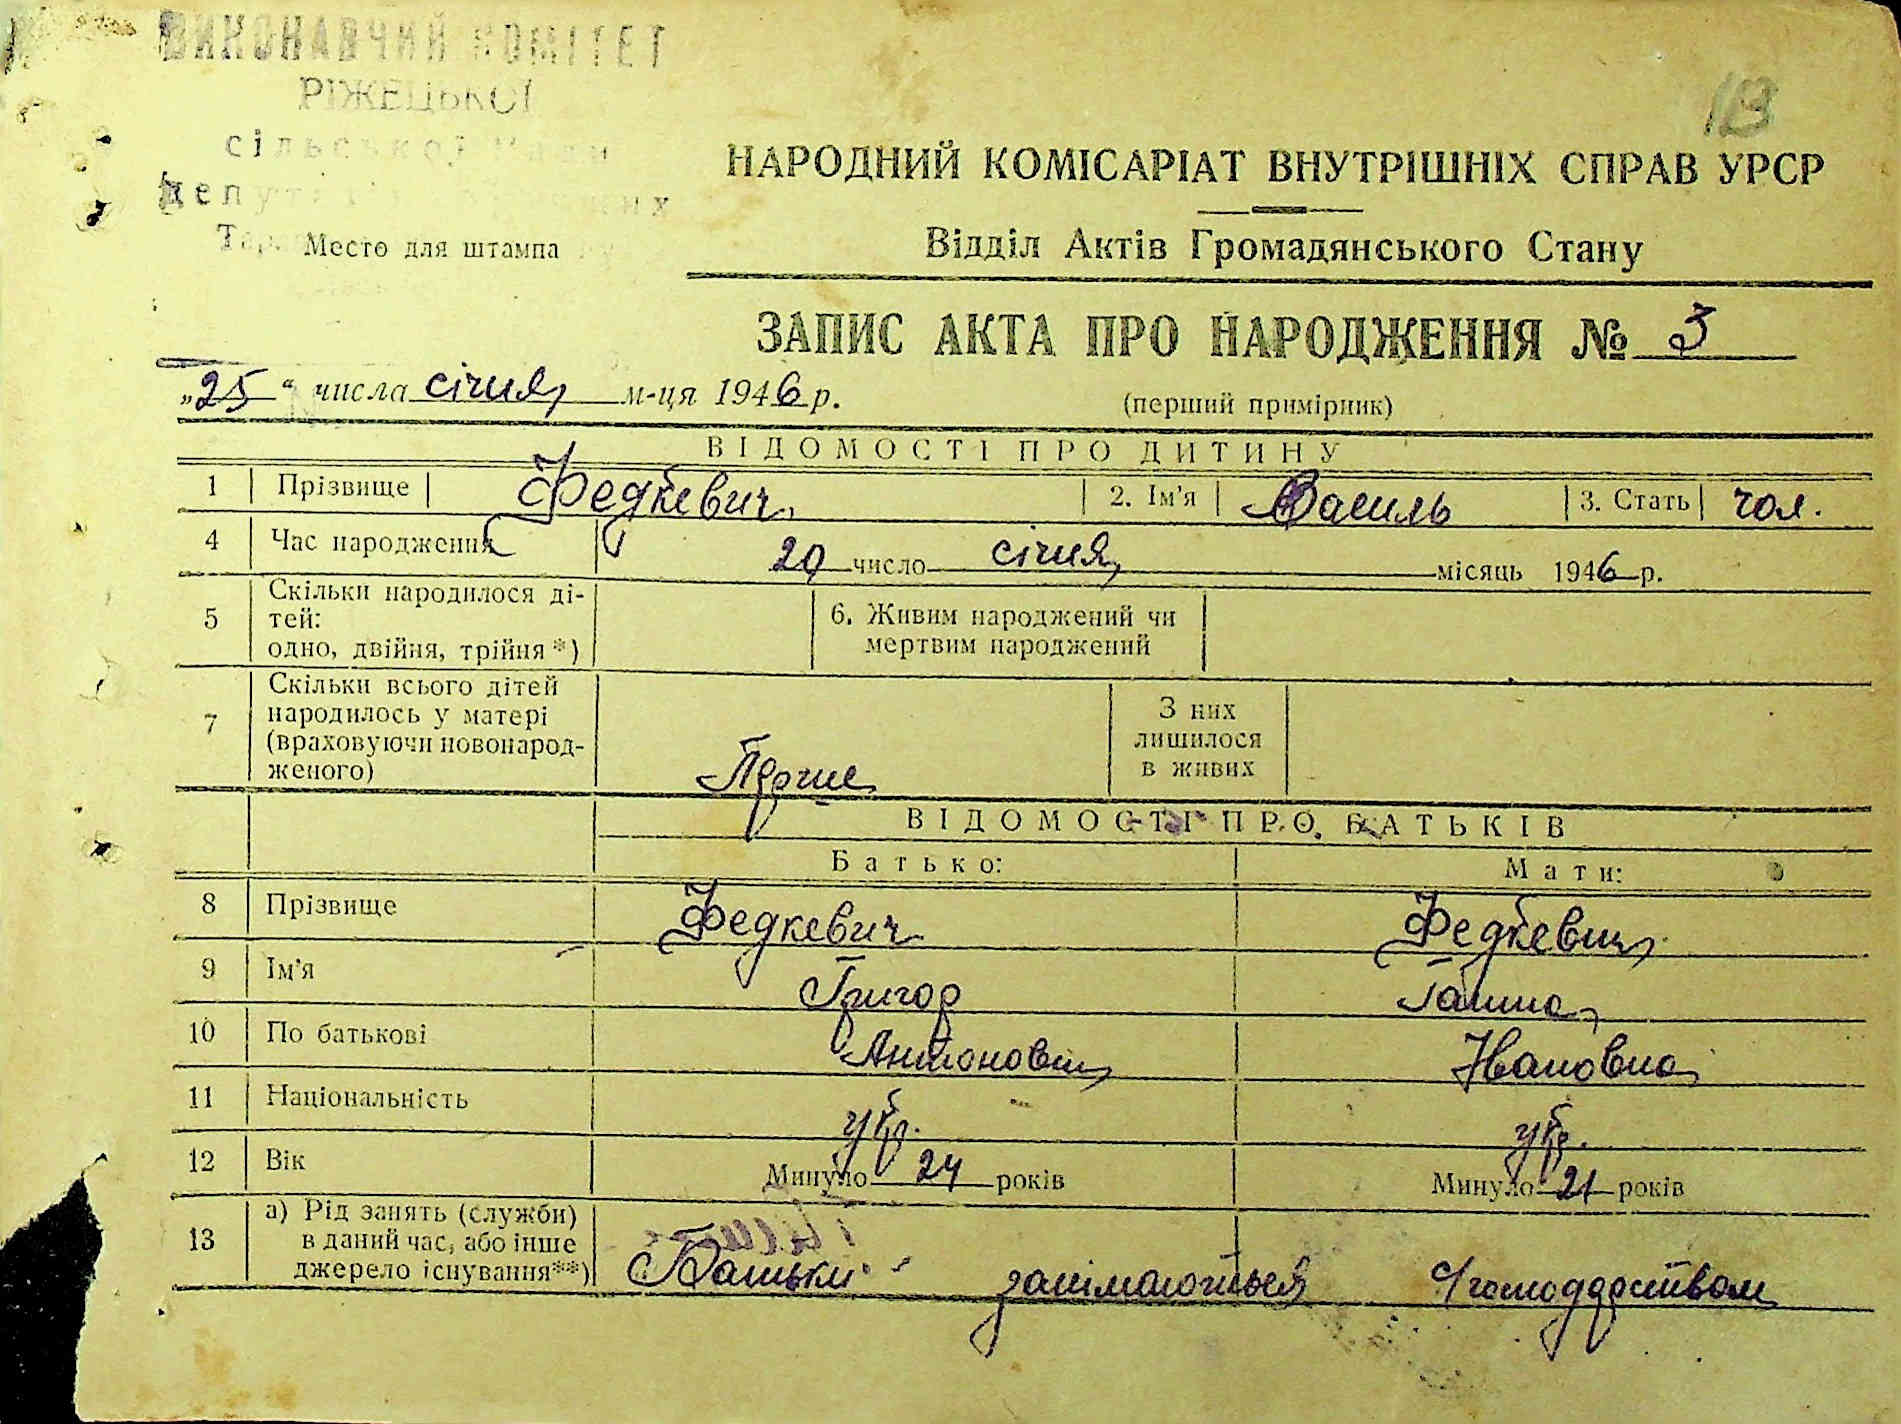 ВИКОНАВЧИЙ КОМІТЕТ
РІЖЕЦЬКОЇ
сільської Ради
Место для штампа
113
НАРОДНИЙ КОМІСАРІАТ ВНУТРІШНІХ СПРАВ УРСР
Відділ Актів Громадянського Стану
ЗАПИС АКТА ПРО НАРОДЖЕННЯ № 3
„25“ числа січня м-ця 1946 р.
(перший примірник)
ВІДОМОСТІ ПРО ДИТИНУ
1 Прізвище Федкевич 2. Ім'я Василь 3. Стать чол.
4 Час народження 20 число січня місяць 1946 р.
5 Скільки народилося ді-
тей:
одно, двійня, трійня *)
6. Живим народжений чи
мертвим народжений
7 Скільки всього дітей
народилось у матері
(враховуючи новонарод-
женого)
Перше
З них
лишилося
в живих
ВІДОМОСТІ ПРО БАТЬКІВ
Батько: Мати:
8 Прізвище Федкевич Федкевич
9 Ім'я Григор Ганна
10 По батькові Антонович Івановна
11 Національність укр. укр.
12 Вік Минуло 24 років Минуло 21 років
13 а) Рід занять (служби)
в даний час, або інше
джерело існування**)
Батьки занімаються с/господарством